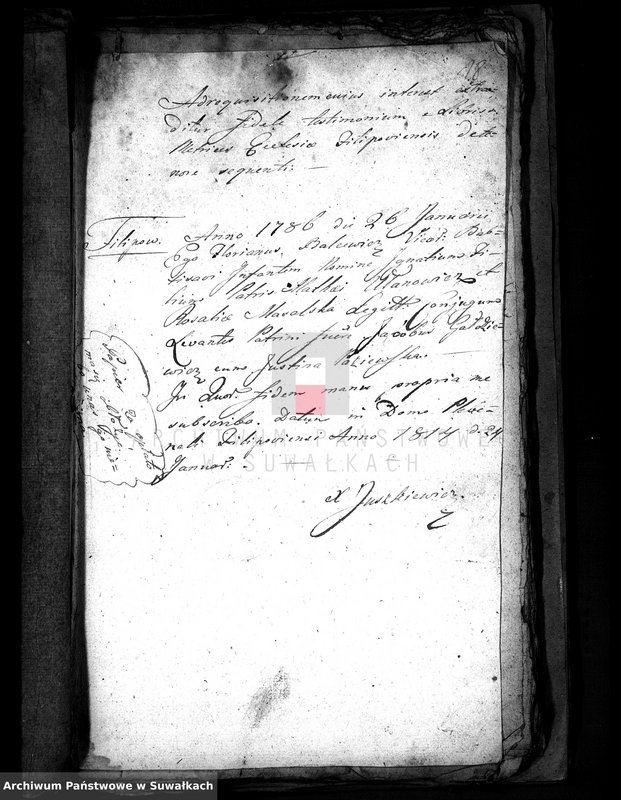 Ad requisitionem cuius interest extra-
ditur fidele testimonium e Libris
Metrices Ecclesiæ Filipoviensis de te-
nore sequenti. —
Filipow.
Anno 1786 die 26 Januarii
Ego Florianus Balcewicz Vicar. Bab-
tisavi Infantem Nomine Ignatium Fi-
lium Patris Mathæi Ullanowicz et
Rosaliæ Masalska Legitt. conjugum
Levantes Patrini fuere Jacobus
wicz cum Justina
In Quor. fidem manu propria me
subscribo. Datum in Domo Pleb-
nali Filipoviensi Anno 1814 d. 24
Januar. —
X Juszkiewicz
Papier
98
ARCHIWUM PAŃSTWOWE
W SUWAŁKACH
Archiwum Państwowe w Suwałkach